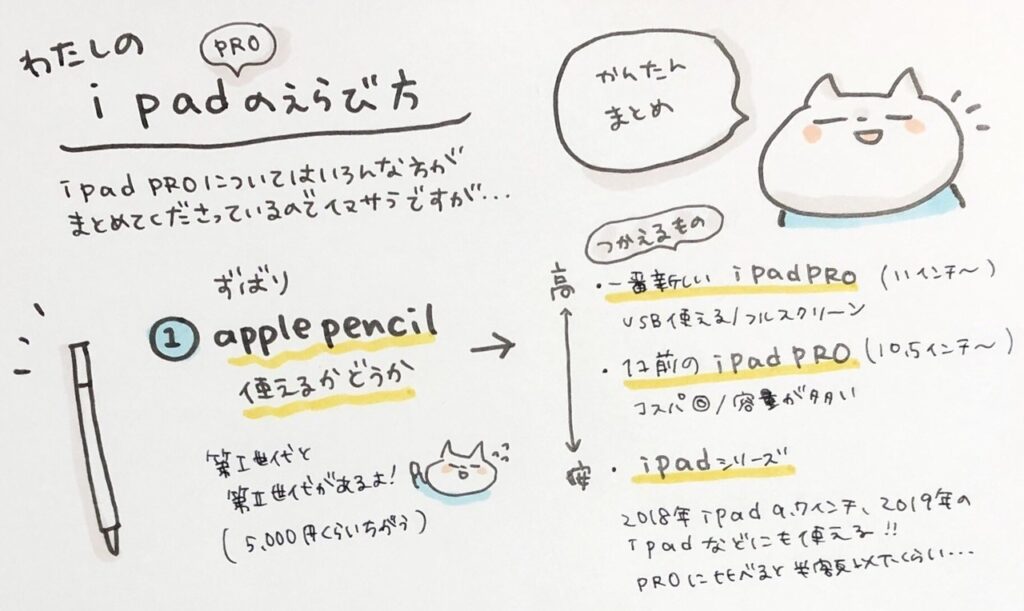 わたしの
PRO
ipadのえらび方
ipad PROについてはいろんな方が
まとめてくださっているのでイマサラですが...
かんたん
まとめ
ずばり
① apple pencil
使えるかどうか
第Ⅰ世代と
第Ⅱ世代があるよ!
(5,000円くらいちがう)
つかえるもの
高
・一番新しい ipad PRO (11インチ〜)
USB使える/フルスクリーン
・1コ前の ipad PRO (10.5インチ〜)
コスパ◎/容量が多い
安
・ipadシリーズ
2018年 ipad 9.7インチ、2019年の
ipadなどにも使える!!
PROに比べると半額以下くらい...